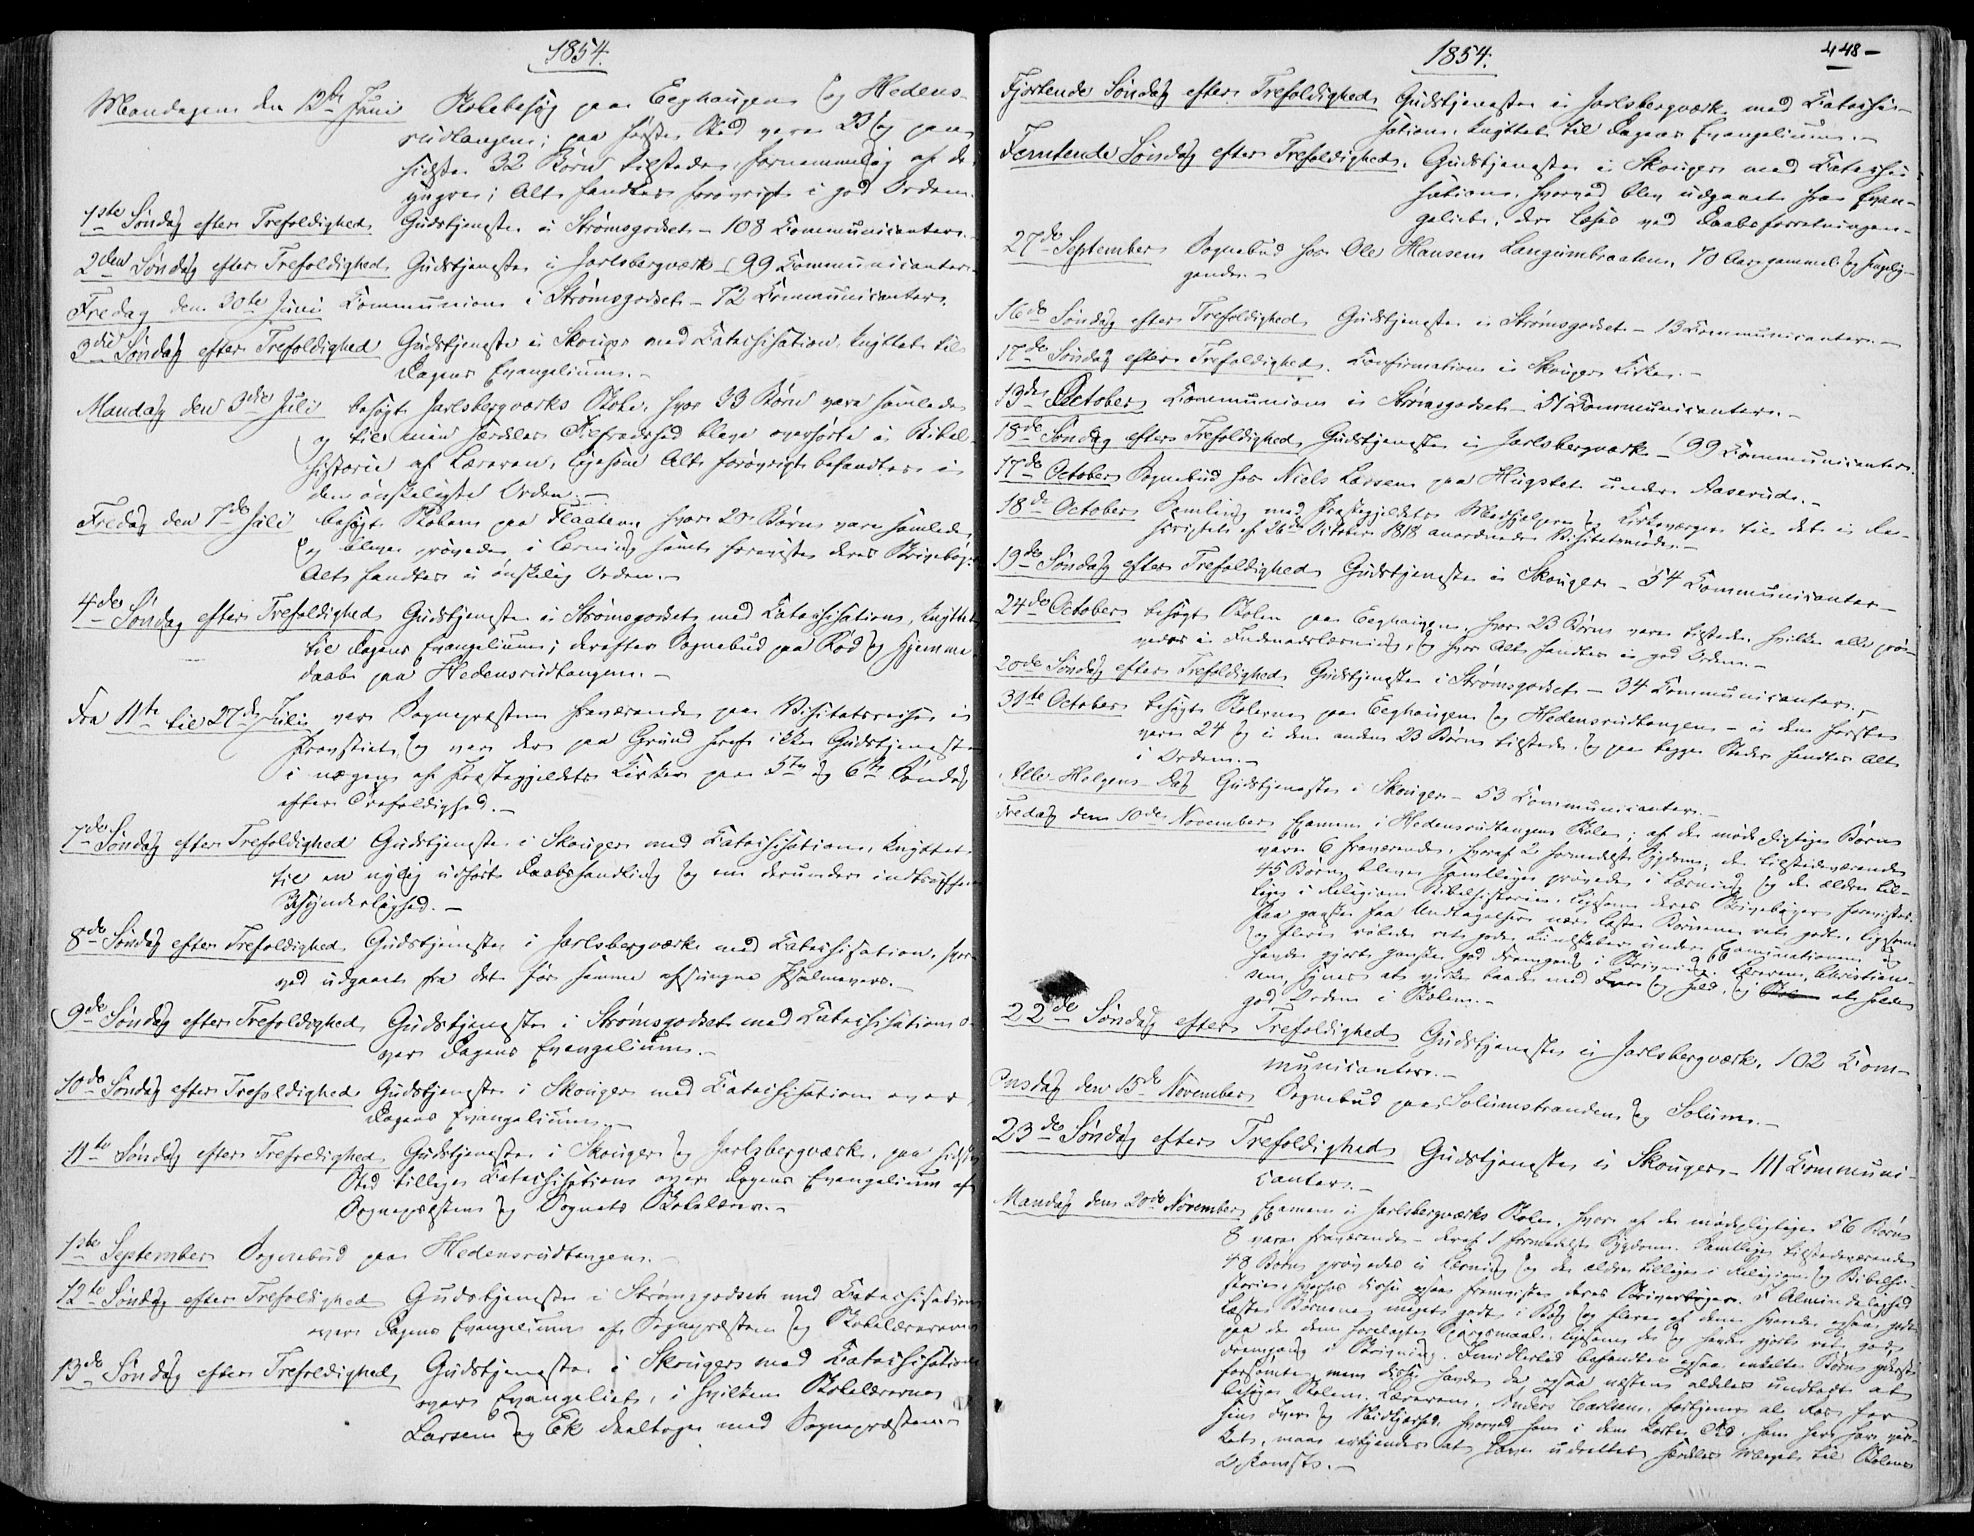 1854.
Mandagen den 12te Juni Skolebesøg paa Eeghaugen og Hedens-
rudtangen; paa første Sted vare 23 og paa
sidste 32 Børn tilstede, fornemmelig af de
yngre; Alt fandtes forøvrigt i god Orden.
1ste Søndag efter Trefoldighed Gudstjeneste i Strømsgodset – 108 Communicanter.
2den Søndag efter Trefoldighed Gudstjeneste i Jarlsbergværk – 99 Communicanter.
Fredag den 30te Juni Communion i Strømsgodset – 72 Communicanter.
3die Søndag efter Trefoldighed Gudstjeneste i Skouger med Catechisation, knyttet til
Dagens Evangelium. –
Mandag den 3die Juli besøgt Jarlsbergværks Skole, hvor 33 Børn vare samlede
og til min særdeles Tilfredshed bleve overhørte i Bibel-
historie af Læreren, ligesom Alt forøvrigt befandtes i
den ønskeligste Orden. –
Fredag den 7de Juli besøgt Skolen paa Flaaten, hvor 20 Børn vare samlede
og bleve prøvede i Læsning samt foreviste deres Skrivebøger.
Alt fandtes i ønskelig Orden. –
4de Søndag efter Trefoldighed Gudstjeneste i Strømsgodset med Catechisation, knyttet
til Dagens Evangelium; derefter Sognebud paa Rød og Hjemme-
daab paa Hedensrudtangen. –
Fra 11te til 27de Juli var Sognepræsten fraværende paa Visitatsreise i
Provstiet, og var der paa Grund heraf ikke Gudstjeneste
i nogen af Præstegjeldets Kirker paa 5te og 6te Søndag
efter Trefoldighed. –
7de Søndag efter Trefoldighed Gudstjeneste i Skouger med Catechisation, knyttet
til en nylig udført Daabshandling og en derunder indtruffen
Besynderlighed. –
8de Søndag efter Trefoldighed Gudstjeneste i Jarlsbergværk med Catechisation, hvor-
ved udgaaet fra det før samme afsungne Psalmevers. –
9de Søndag efter Trefoldighed Gudstjeneste i Strømsgodset med Catechisation o-
ver Dagens Evangelium. –
10de Søndag efter Trefoldighed Gudstjeneste i Skouger med Catechisation over
Dagens Evangelium. –
11te Søndag efter Trefoldighed Gudstjeneste i Skouger og Jarlsbergværk, paa sidste
Sted tillige Catechisation over Dagens Evangelium af
Sognepræsten og Sognets Skolelærer. –
1ste September Sognebud paa Hedensrudtangen. –
12te Søndag efter Trefoldighed Gudstjeneste i Strømsgodset med Catechisation
over Dagens Evangelium af Sognepræsten og Skolelærerne
13de Søndag efter Trefoldighed Gudstjeneste i Skouger med Catechisation
over Evangeliet, i hvilken Skolelærerne
Larsen og Ek deeltoge med Sognepræsten –
1854.
448 –
Fjortende Søndag efter Trefoldighed Gudstjeneste i Jarlsbergværk med Catechi-
sation, knyttet til Dagens Evangelium. –
Femtende Søndag efter Trefoldighed. Gudstjeneste i Skouger med Catechi-
sation, hvorved blev udgaaet fra Evan-
geliet, der læses ved Daabsforretningen. –
27de September Sognebud hos Ole Hansen Langumbraaten, 70 Aar gammel og sengelig-
gende. –
16de Søndag efter Trefoldighed Gudstjeneste i Strømsgodset – 13 Communicanter. –
17de Søndag efter Trefoldighed. Confirmation i Skouger Kirke. –
13de October Communion i Strømsgodset – 51 Communicanter. –
18de Søndag efter Trefoldighed Gudstjeneste i Jarlsbergværk – 99 Communicanter.
17de October Sognebud hos Niels Larsen paa Hugstet under Aaserud. –
18de October Samling med Præstegjeldets Medhjelpere og Kirkeværger til det i Re-
scriptet af 26de October 1818 anordnede Visitatsmøde. –
19de Søndag efter Trefoldighed Gudstjeneste i Skouger – 54 Communicanter –
24de October besøgt Skolen paa Eeghaugen, hvor 23 Børn vare tilstede, hvilke alle prø-
vedes i Indenadslæsning, og hvor Alt fandtes i god Orden. –
20de Søndag efter Trefoldighed Gudstjeneste i Strømsgodset – 34 Communicanter. –
31te October besøgt Skolerne paa Eeghaugen og Hedensrudtangen – i den første
vare 24 og i den anden 23 Børn tilstede, og paa begge Steder fandtes Alt
i Orden. –
Alle-Helgens-Dag Gudstjeneste i Skouger – 53 Communicanter. –
Fredag den 10de November Examen i Hedensrudtangens Skole; af de mødepligtige Børn
vare 6 fraværende, hvoraf 2 formedelst Sygdom; de tilstedeværende
45 Børn bleve samtlige prøvede i Læsning og de ældre til-
lige i Religion, Bibelhistorie, ligesom deres Skrivebøger forevistes.
Paa ganske faa Undtagelser nær læste Børnene ret godt, ligesom
og flere røbede ret gode Kundskaber under Examinationen og
havde gjort ganske god Fremgang i Skrivning. Læreren, Christian-
sen, synes at virke baade med Iver og Held, og at holde
god Orden i Skolen. –
22de Søndag efter Trefoldighed Gudstjeneste i Jarlsbergværk, 102 Com-
municanter. –
Onsdag den 15de November Sognebud paa Solumstranden og Solum. –
23de Søndag efter Trefoldighed Gudstjeneste i Skouger – 111 Communi-
canter. –
Mandag den 20de November Examen i Jarlsbergværks Skole, hvor af de mødepligtige 56 Børn
8 vare fraværende – deraf 1 formedelst Sygdom. Samtlige tilstedeværende
48 Børn prøvedes i Læsning og de ældre tillige i Religion og Bibelhi-
storie, hvorhos disse ogsaa fremviste deres Skrivebøger. I Almindelighed
læste Børnene meget godt i Bog og flere af dem svarede ogsaa godt
paa de dem forelagte Spørgsmaal, ligesom de og havde gjort ret god
Fremgang i Skrivning. Imidlertid befandtes ogsaa enkelte Børn yderst
forsømte, men disse havde da ogsaa næsten aldeles undladt at
besøge Skolen. Læreren, Anders Carlsen, fortjener al Roes for
sin Iver og Nidkjærhed, hvorved han i den korte Tid, han her har vir-
ket, maa erkjendes at have udrettet særdeles Meget til Skolens
Opkomst. –